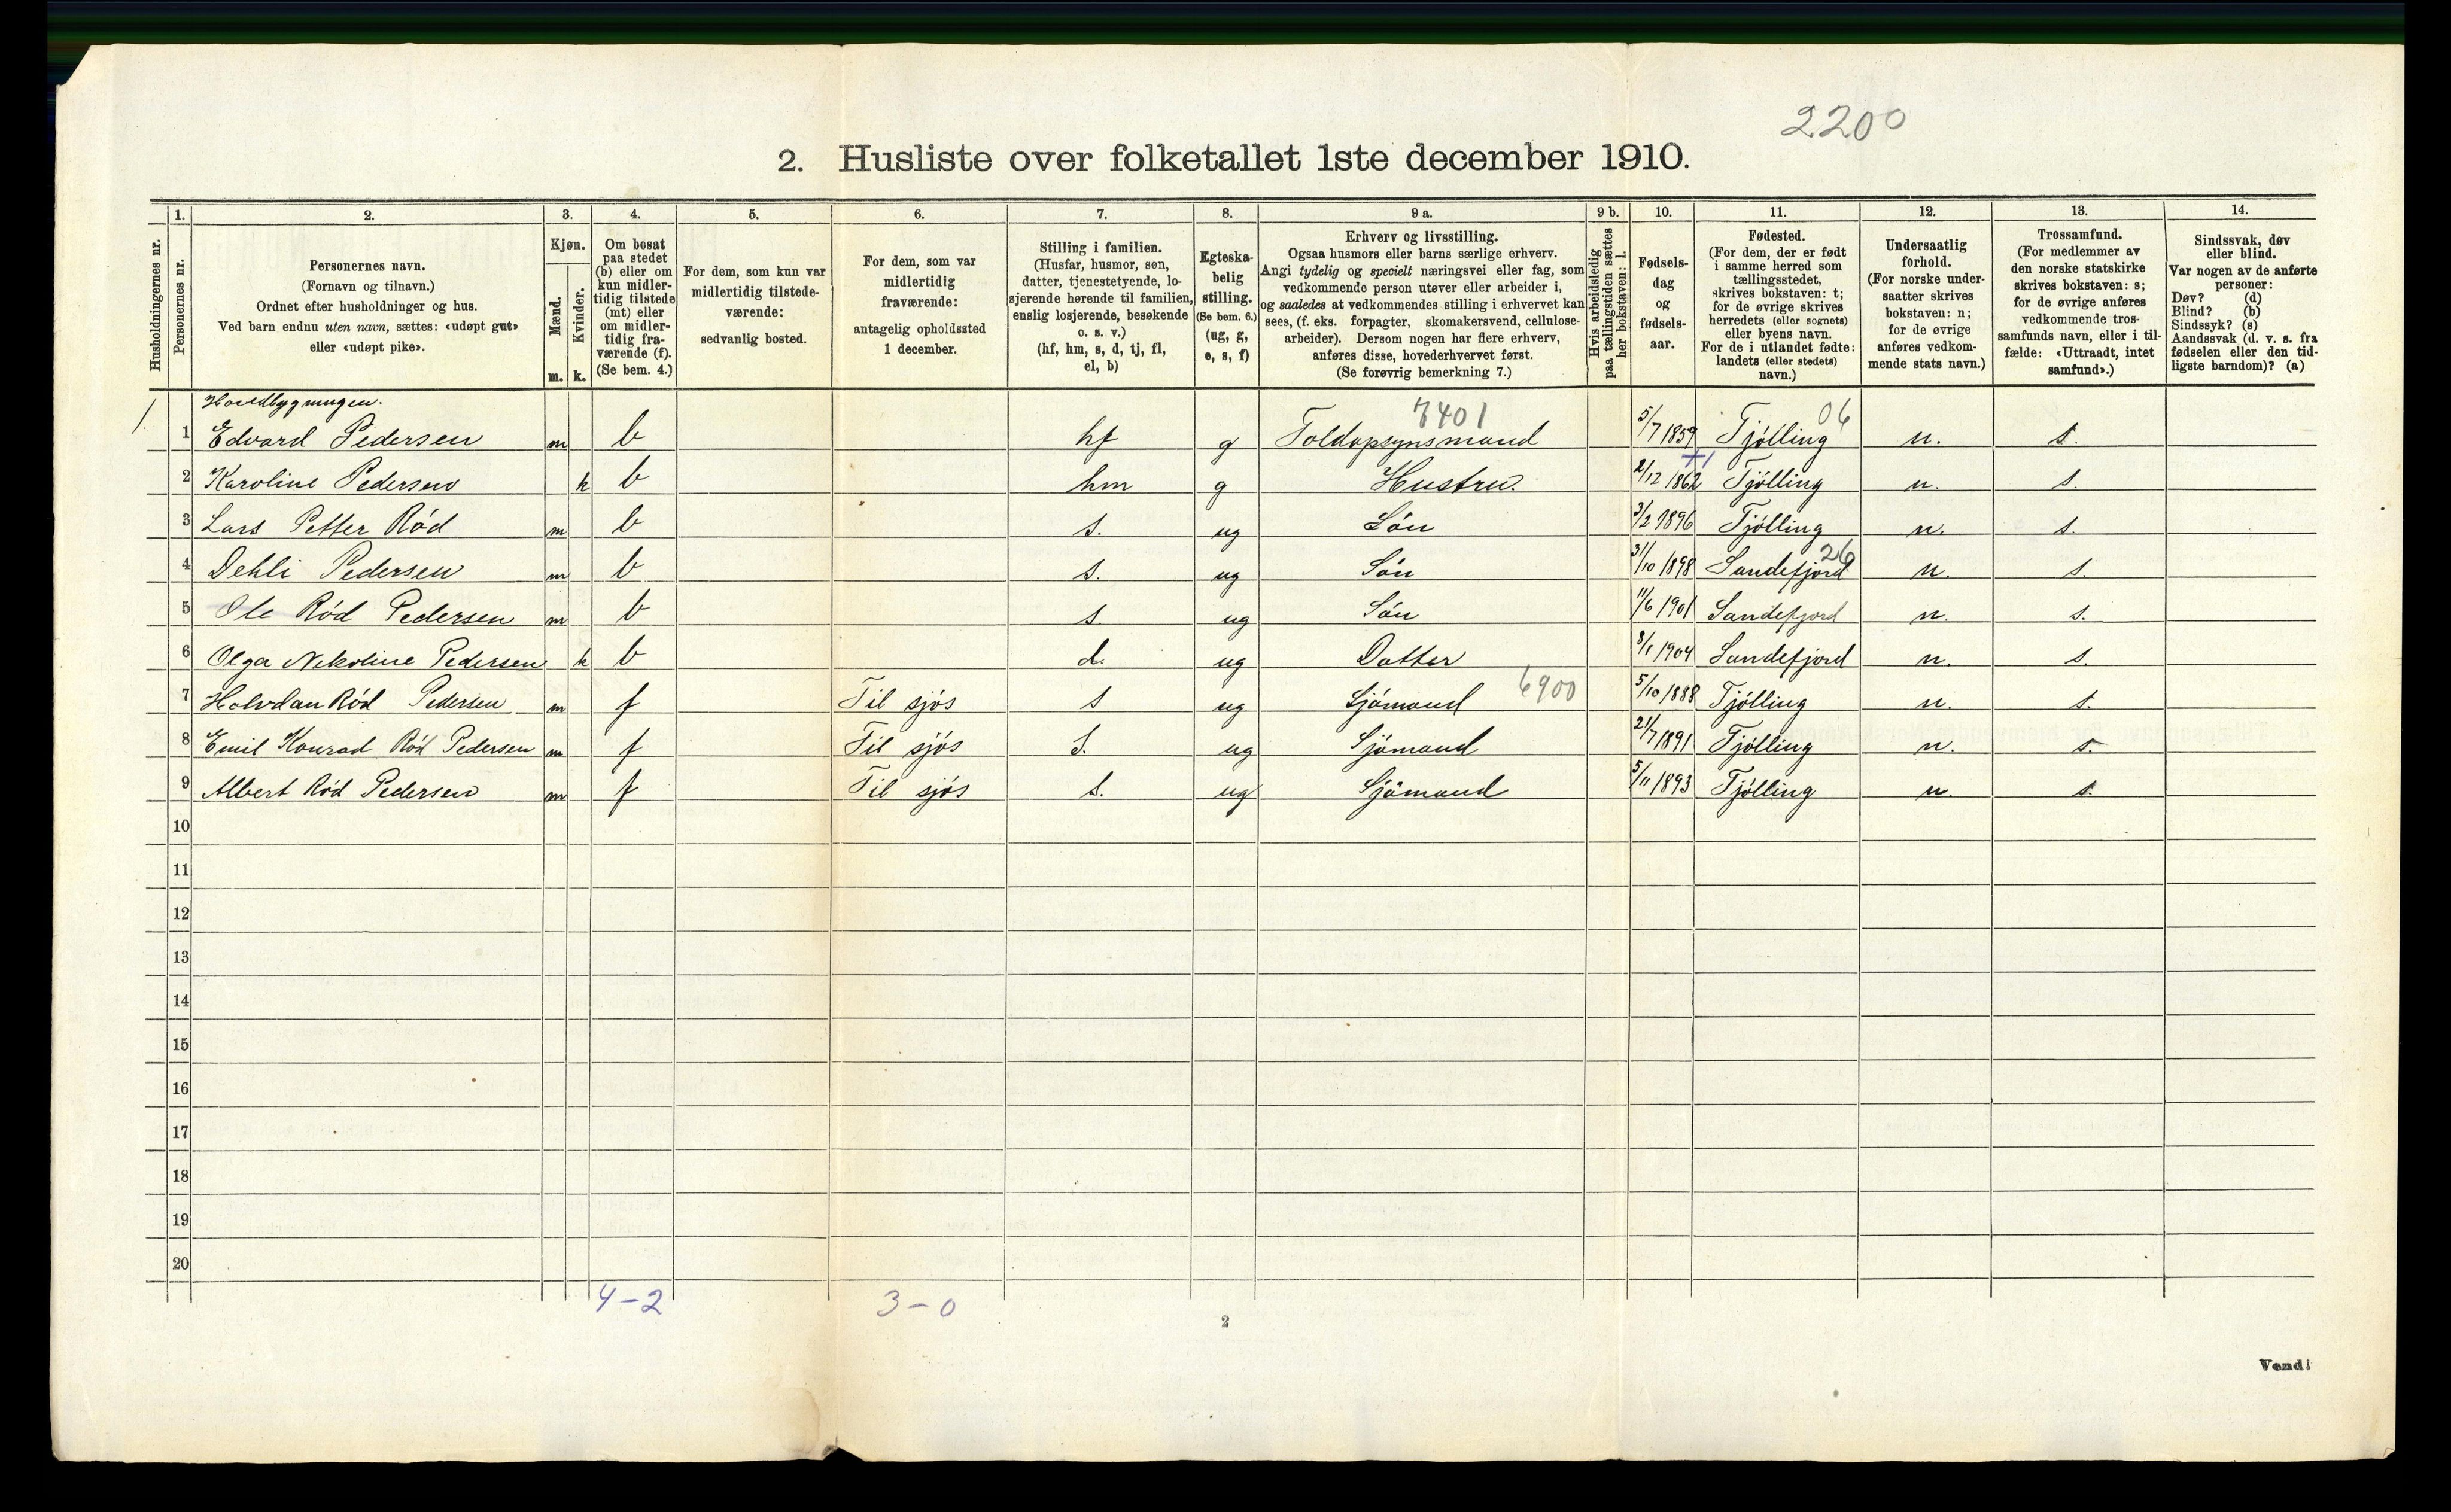 2200
2. Husliste over folketallet 1ste december 1910.
Husholdningernes nr.
1.
Personernes nr.
2.
Personernes navn.
(Fornavn og tilnavn.)
Ordnet efter husholdninger og hus.
Ved barn endnu uten navn, sættes: «udøpt gut»
eller «udøpt pike».
3.
Kjøn.
Mænd.
Kvinder.
m. k.
4.
Om bosat
paa stedet
(b) eller om
kun midler-
tidig tilstede
(mt) eller
om midler-
tidig fra-
værende (f).
(Se bem. 4.)
5.
For dem, som kun var
midlertidig tilstede-
værende:
sedvanlig bosted.
6.
For dem, som var
midlertidig
fraværende:
antagelig opholdssted
1 december.
7.
Stilling i familien.
(Husfar, husmor, søn,
datter, tjenestetyende, lo-
sjerende hørende til familien,
enslig losjerende, besøkende
o. s. v.)
(hf, hm, s, d, tj, fl,
el, b)
8.
Egteska-
belig
stilling.
(Se bem. 6.)
(ug, g,
e, s, f)
9 a.
Erhverv og livsstilling.
Ogsaa husmors eller barns særlige erhverv.
Angi tydelig og specielt næringsvei eller fag, som
vedkommende person utøver eller arbeider i,
og saaledes at vedkommendes stilling i erhvervet kan
sees, (f. eks. forpagter, skomakersvend, cellulose-
arbeider). Dersom nogen har flere erhverv,
anføres disse, hovederhvervet først.
(Se forøvrig bemerkning 7.)
9 b.
Hvis arbeidsledig
paa tællingstiden sættes
her bokstaven: l.
10.
Fødsels-
dag
og
fødsels-
aar.
11.
Fødested.
(For dem, der er født
i samme herred som
tællingsstedet,
skrives bokstaven: t;
for de øvrige skrives
herredets (eller sognets)
eller byens navn.
For de i utlandet fødte:
landets (eller stedets)
navn.)
12.
Undersaatlig
forhold.
(For norske under-
saatter skrives
bokstaven: n;
for de øvrige
anføres vedkom-
mende stats navn.)
13.
Trossamfund.
(For medlemmer av
den norske statskirke
skrives bokstaven: s;
for de øvrige anføres
vedkommende tros-
samfunds navn, eller i til-
fælde: «Uttraadt, intet
samfund».)
14.
Sindssvak, døv
eller blind.
Var nogen av de anførte
personer:
Døv? (d)
Blind? (b)
Sindssyk? (s)
Aandssvak (d. v. s. fra
fødselen eller den tid-
ligste barndom)? (a)
Hovedbygningen.
7401 06
1. 1 Edvard Pedersen m b hf g Toldopsynsmand 5/7 1859 Tjölling n. s.
+1
2 Karoline Pedersen k b hm g Hustru. 2/12 1862 Tjölling n. s.
3 Lars Petter Röd m b s. ug Sön 3/2 1896 Tjölling n. s.
26
4 Dehli Pedersen m b s. ug Sön 31/10 1898 Sandefjord n. s.
5 Ole Röd Pedersen m b s. ug Sön 11/6 1901 Sandefjord n. s.
6 Olga Nikoline Pedersen k b d. ug Datter 8/1 1904 Sandefjord n. s.
7 Halvdan Röd Pedersen m f Til sjös s ug Sjömand 6900 5/10 1888 Tjölling n. s.
8 Emil Konrad Röd Pedersen m f Til sjös S. ug Sjömand 21/7 1891 Tjölling n. s.
9 Albert Röd Pedersen m f Til sjös s. ug Sjömand 5/11 1893 Tjölling n. s.
10
11
12
13
14
15
16
17
18
19
20
4-2 3-0
2
Vend!